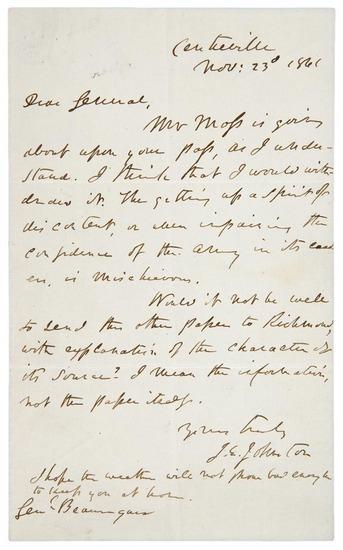 Centreville
Nov: 23d 1861
Dear General,
Mr Moss is going
about upon your pass, as I under-
stand. I think that I would with-
draw it. The getting up a spirit of
discontent, or even impairing the
confidence of the army in its lead-
ers, is mischievous.
Would it not be well
to send this other paper to Richmond,
with explanation of the character of
its source? I mean the information,
not the paper itself.
Yours truly
J.E. Johnston
I hope the weather will not prove bad enough
to keep you at home.
Genl Beauregard